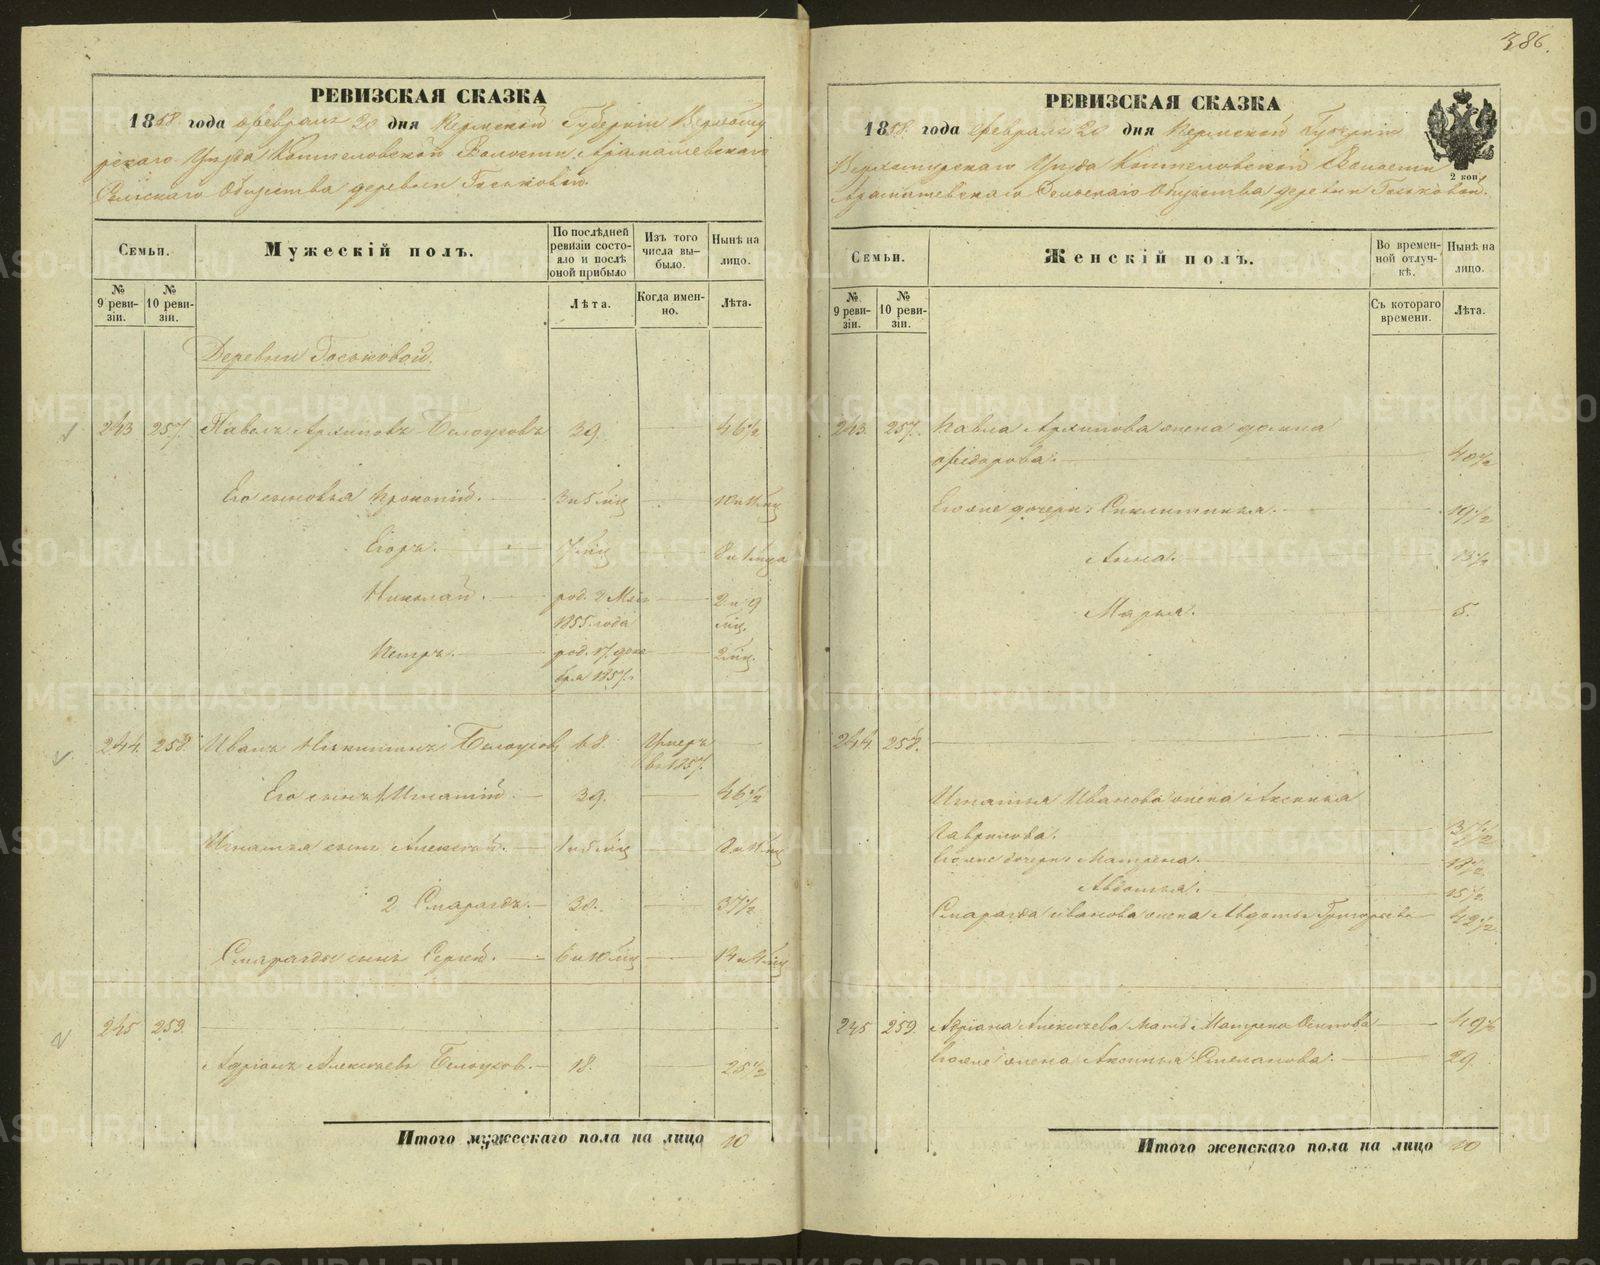 386.
РЕВИЗСКАЯ СКАЗКА
1858 года февраля 20 дня Пермской Губернiи Верхотур
скаго Уѣзда Коптеловской Волости, Арамашевскаго
Сельскаго Общества деревни Госьковой.
Семьи.
Мужескiй полъ.
По послѣдней ревизiи состояло и послѣ оной прибыло
Изъ того числа выбыло.
Нынѣ на лицо.
№ 9 ревизiи.
№ 10 ревизiи.
Лѣта.
Когда именно.
Лѣта.
Деревни Госьковой.
243 257. Павелъ Архиповъ Белоусовъ 39. 46½
Его сыновья Прокопiй. 3 и 5 мѣц
Егоръ. 7 мѣц
Николай. род. 2 Мая 2 и 9
1855 года мѣц.
Петръ. род. 17 дека 2 мѣц.
бря 1857.
244. 258. Иванъ Никитинъ Белоусов 68. Умеръ
въ 1857.
Его сынъ 1 Игнатiй. 39. 46½
Игнатья сынъ Алексѣй. 1 и 5 мѣц
2 Смарагдъ. 30. 37½
Смарагда сынъ Сергѣй. 6 и 10 мѣц
245 259.
Адрiанъ Алексѣевъ Белоусов. 18. 25½
Итого мужескаго пола на лицо 10
РЕВИЗСКАЯ СКАЗКА
1858 года февраля 20 дня Пермской Губернiи
Верхотурскаго Уѣзда Коптеловской Волости
Арамашевскаго Сельскаго Общества деревни Госьковой.
2 коп.
Семьи.
Женскiй полъ.
Во временной отлучкѣ.
Нынѣ на лицо.
№ 9 ревизiи.
№ 10 ревизiи.
Съ котораго времени.
Лѣта.
243. 257. Павла Архипова жена Домна
Федорова. 40½
Его же дочери: Сиклитинья. 19½
Анна. 13½
Марья. 5.
244. 258.
Игнатья Иванова жена Аксинья
Гаврилова. 37½
Его же дочери Матрена. 18½
Авдотья. 15½
Смарагда Иванова жена Авдотья Григорьева 42½
245 259. Адрiана Алексѣева мать Матрена Осипова 49½
Его же жена Аксинья Степанова. 29.
Итого женскаго пола на лицо 10
METRIKI.GASO-URAL.RU